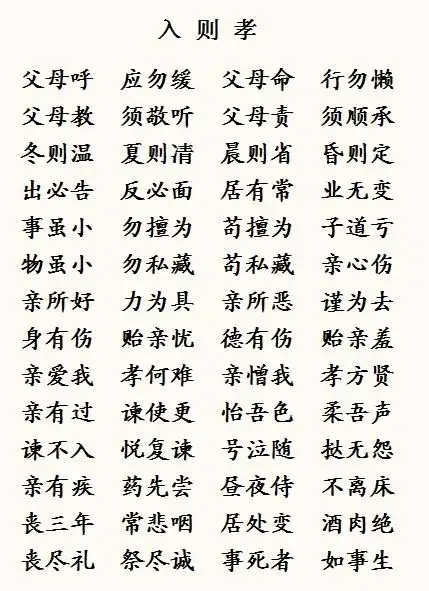 入 则 孝
父母呼 应勿缓 父母命 行勿懒
父母教 须敬听 父母责 须顺承
冬则温 夏则凊 晨则省 昏则定
出必告 反必面 居有常 业无变
事虽小 勿擅为 苟擅为 子道亏
物虽小 勿私藏 苟私藏 亲心伤
亲所好 力为具 亲所恶 谨为去
身有伤 贻亲忧 德有伤 贻亲羞
亲爱我 孝何难 亲憎我 孝方贤
亲有过 谏使更 怡吾色 柔吾声
谏不入 悦复谏 号泣随 挞无怨
亲有疾 药先尝 昼夜侍 不离床
丧三年 常悲咽 居处变 酒肉绝
丧尽礼 祭尽诚 事死者 如事生